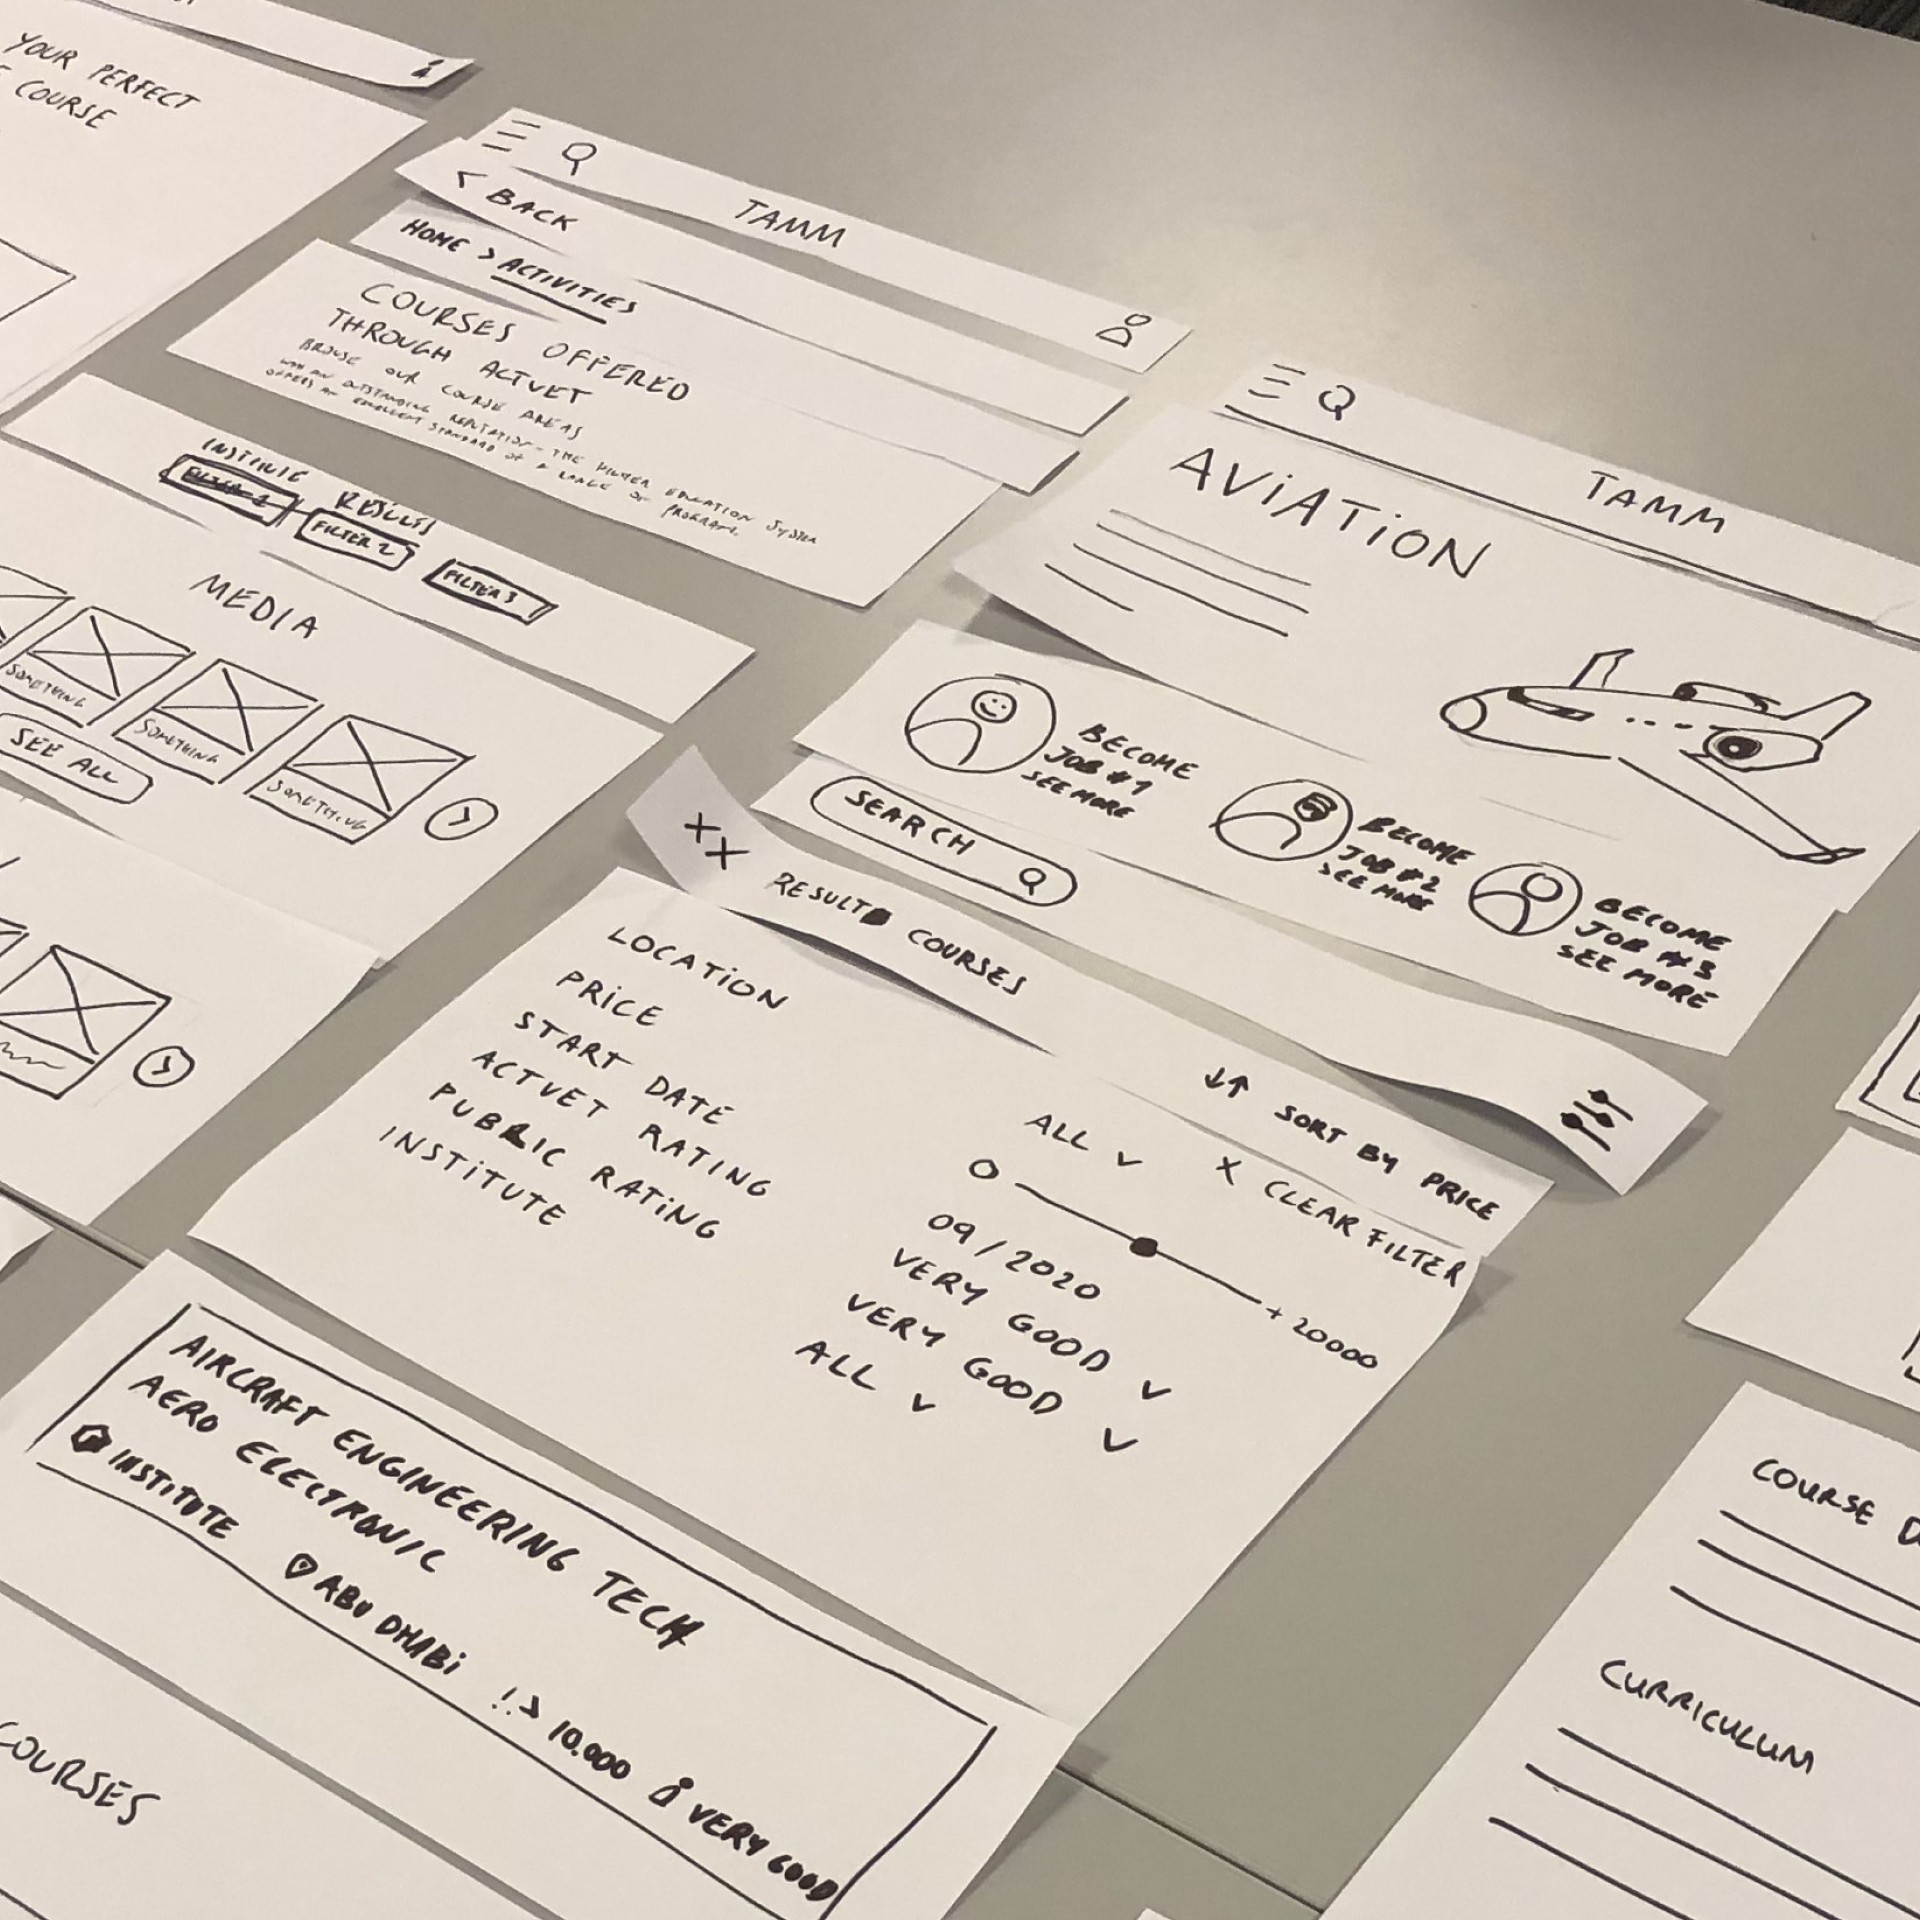 YOUR PERFECT
COURSE
TAMM
< BACK
HOME > ACTIVITIES
COURSES OFFERED
THROUGH ACTVET
BROWSE OUR COURSE AREAS
WITH AN OUTSTANDING REPUTATION - THE HIGHER EDUCATION SYSTEM
OFFERS AN EXCELLENT STANDARD OF A RANGE OF PROGRAMS.
RESULTS
FILTER 2
FILTER 3
MEDIA
SOMETHING
SOMETHING
SOMETHING
SEE ALL
TAMM
AVIATION
BECOME
JOB #1
SEE MORE
BECOME
JOB #2
SEE MORE
BECOME
JOB #3
SEE MORE
SEARCH
XX RESULT COURSES
↓↑ SORT BY PRICE
X CLEAR FILTER
LOCATION ALL
PRICE 0 +20000
START DATE 09/2020
ACTVET RATING VERY GOOD
PUBLIC RATING VERY GOOD
INSTITUTE ALL
AIRCRAFT ENGINEERING TECH
AERO ELECTRONIC
INSTITUTE ABU DHABi 10.000 VERY GOOD
COURSES
COURSE
CURRICULUM